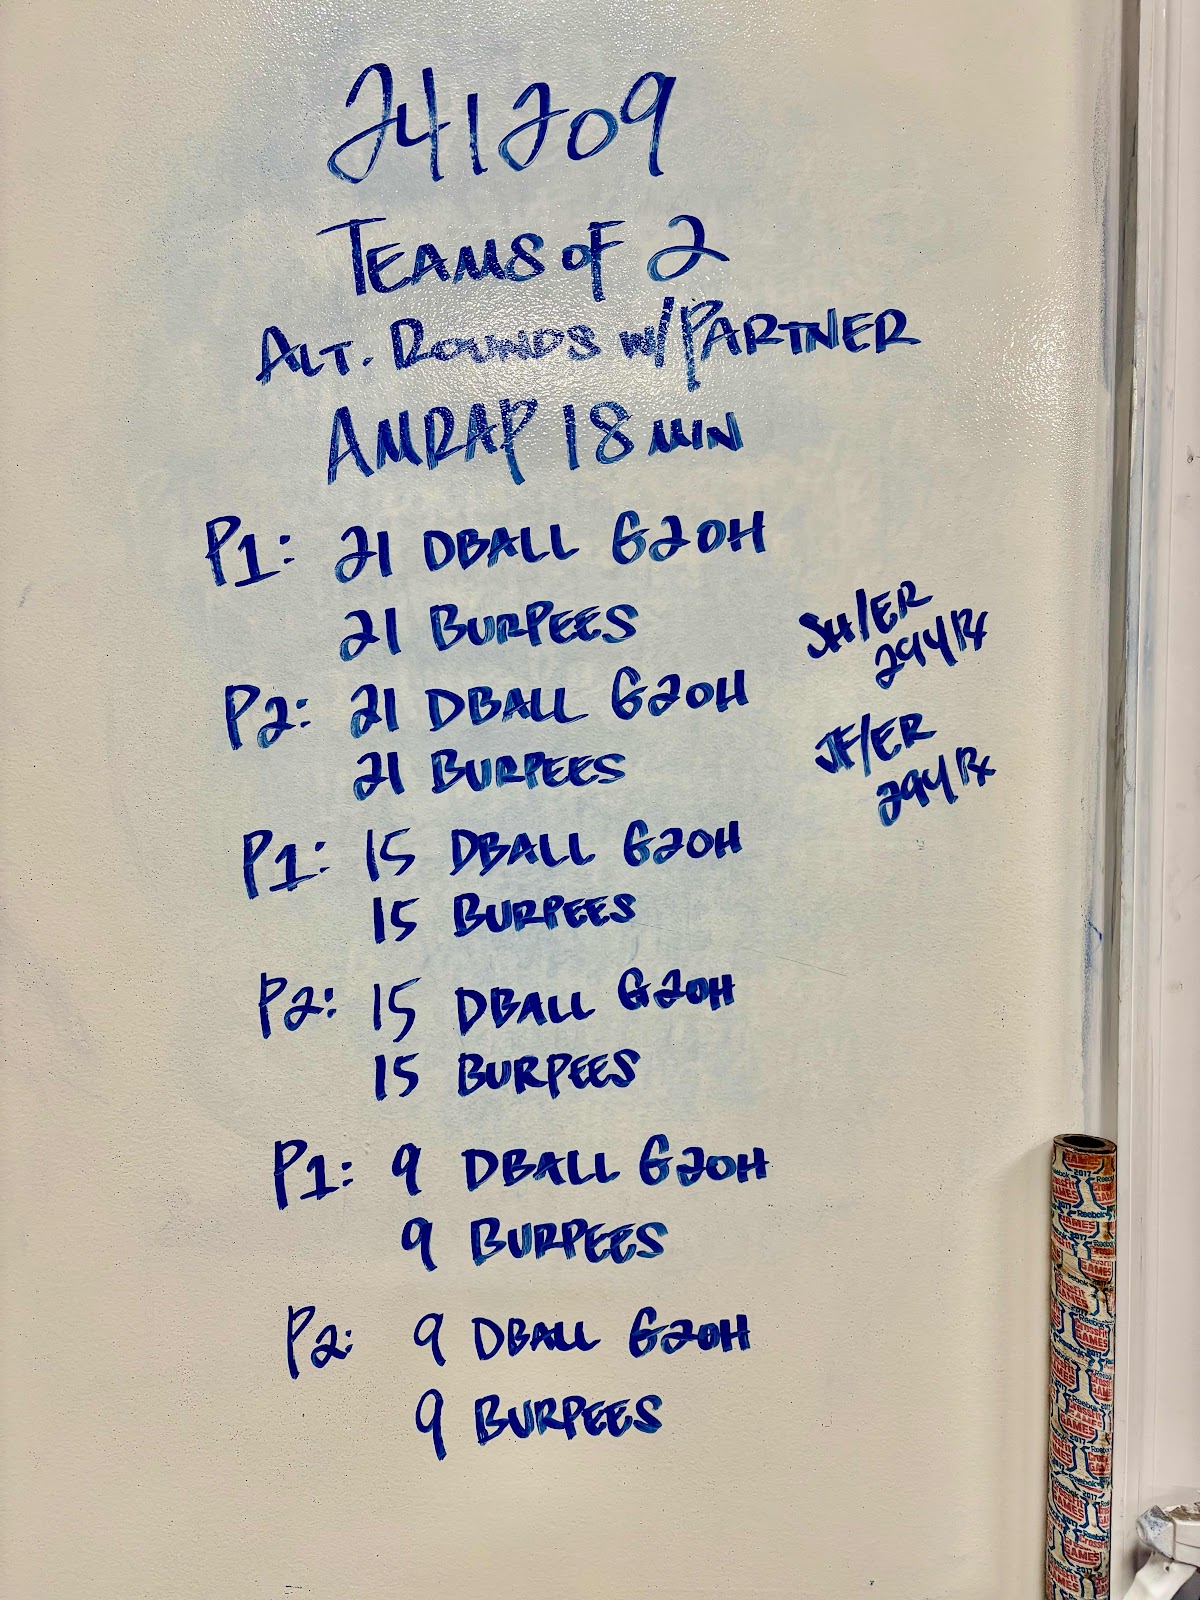 241209
TEAMS OF 2
ALT. ROUNDS W/PARTNER
AMRAP 18 MIN
P1: 21 DBALL G2OH
21 BURPEES
P2: 21 DBALL G2OH
21 BURPEES
P1: 15 DBALL G2OH
15 BURPEES
P2: 15 DBALL G2OH
15 BURPEES
P1: 9 DBALL G2OH
9 BURPEES
P2: 9 DBALL G2OH
9 BURPEES
SH/ER
294 Rx
JF/ER
294 Rx
Reebok
CrossFit
GAMES
2017